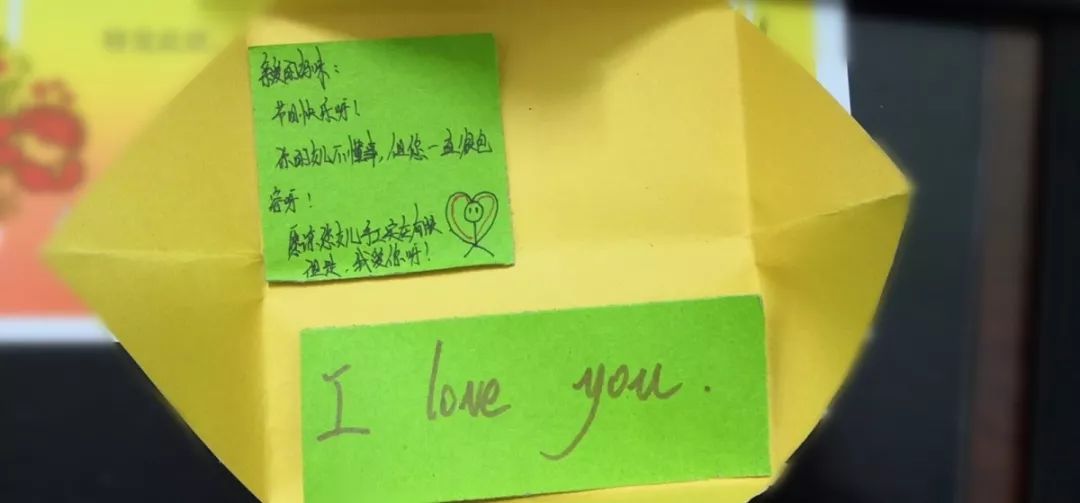 亲爱的妈咪：
节日快乐呀！
你的女儿不懂事，但您一直很包
容呀！
愿谅您女儿手工实在有限，
但是，我爱你呀！
I love you.